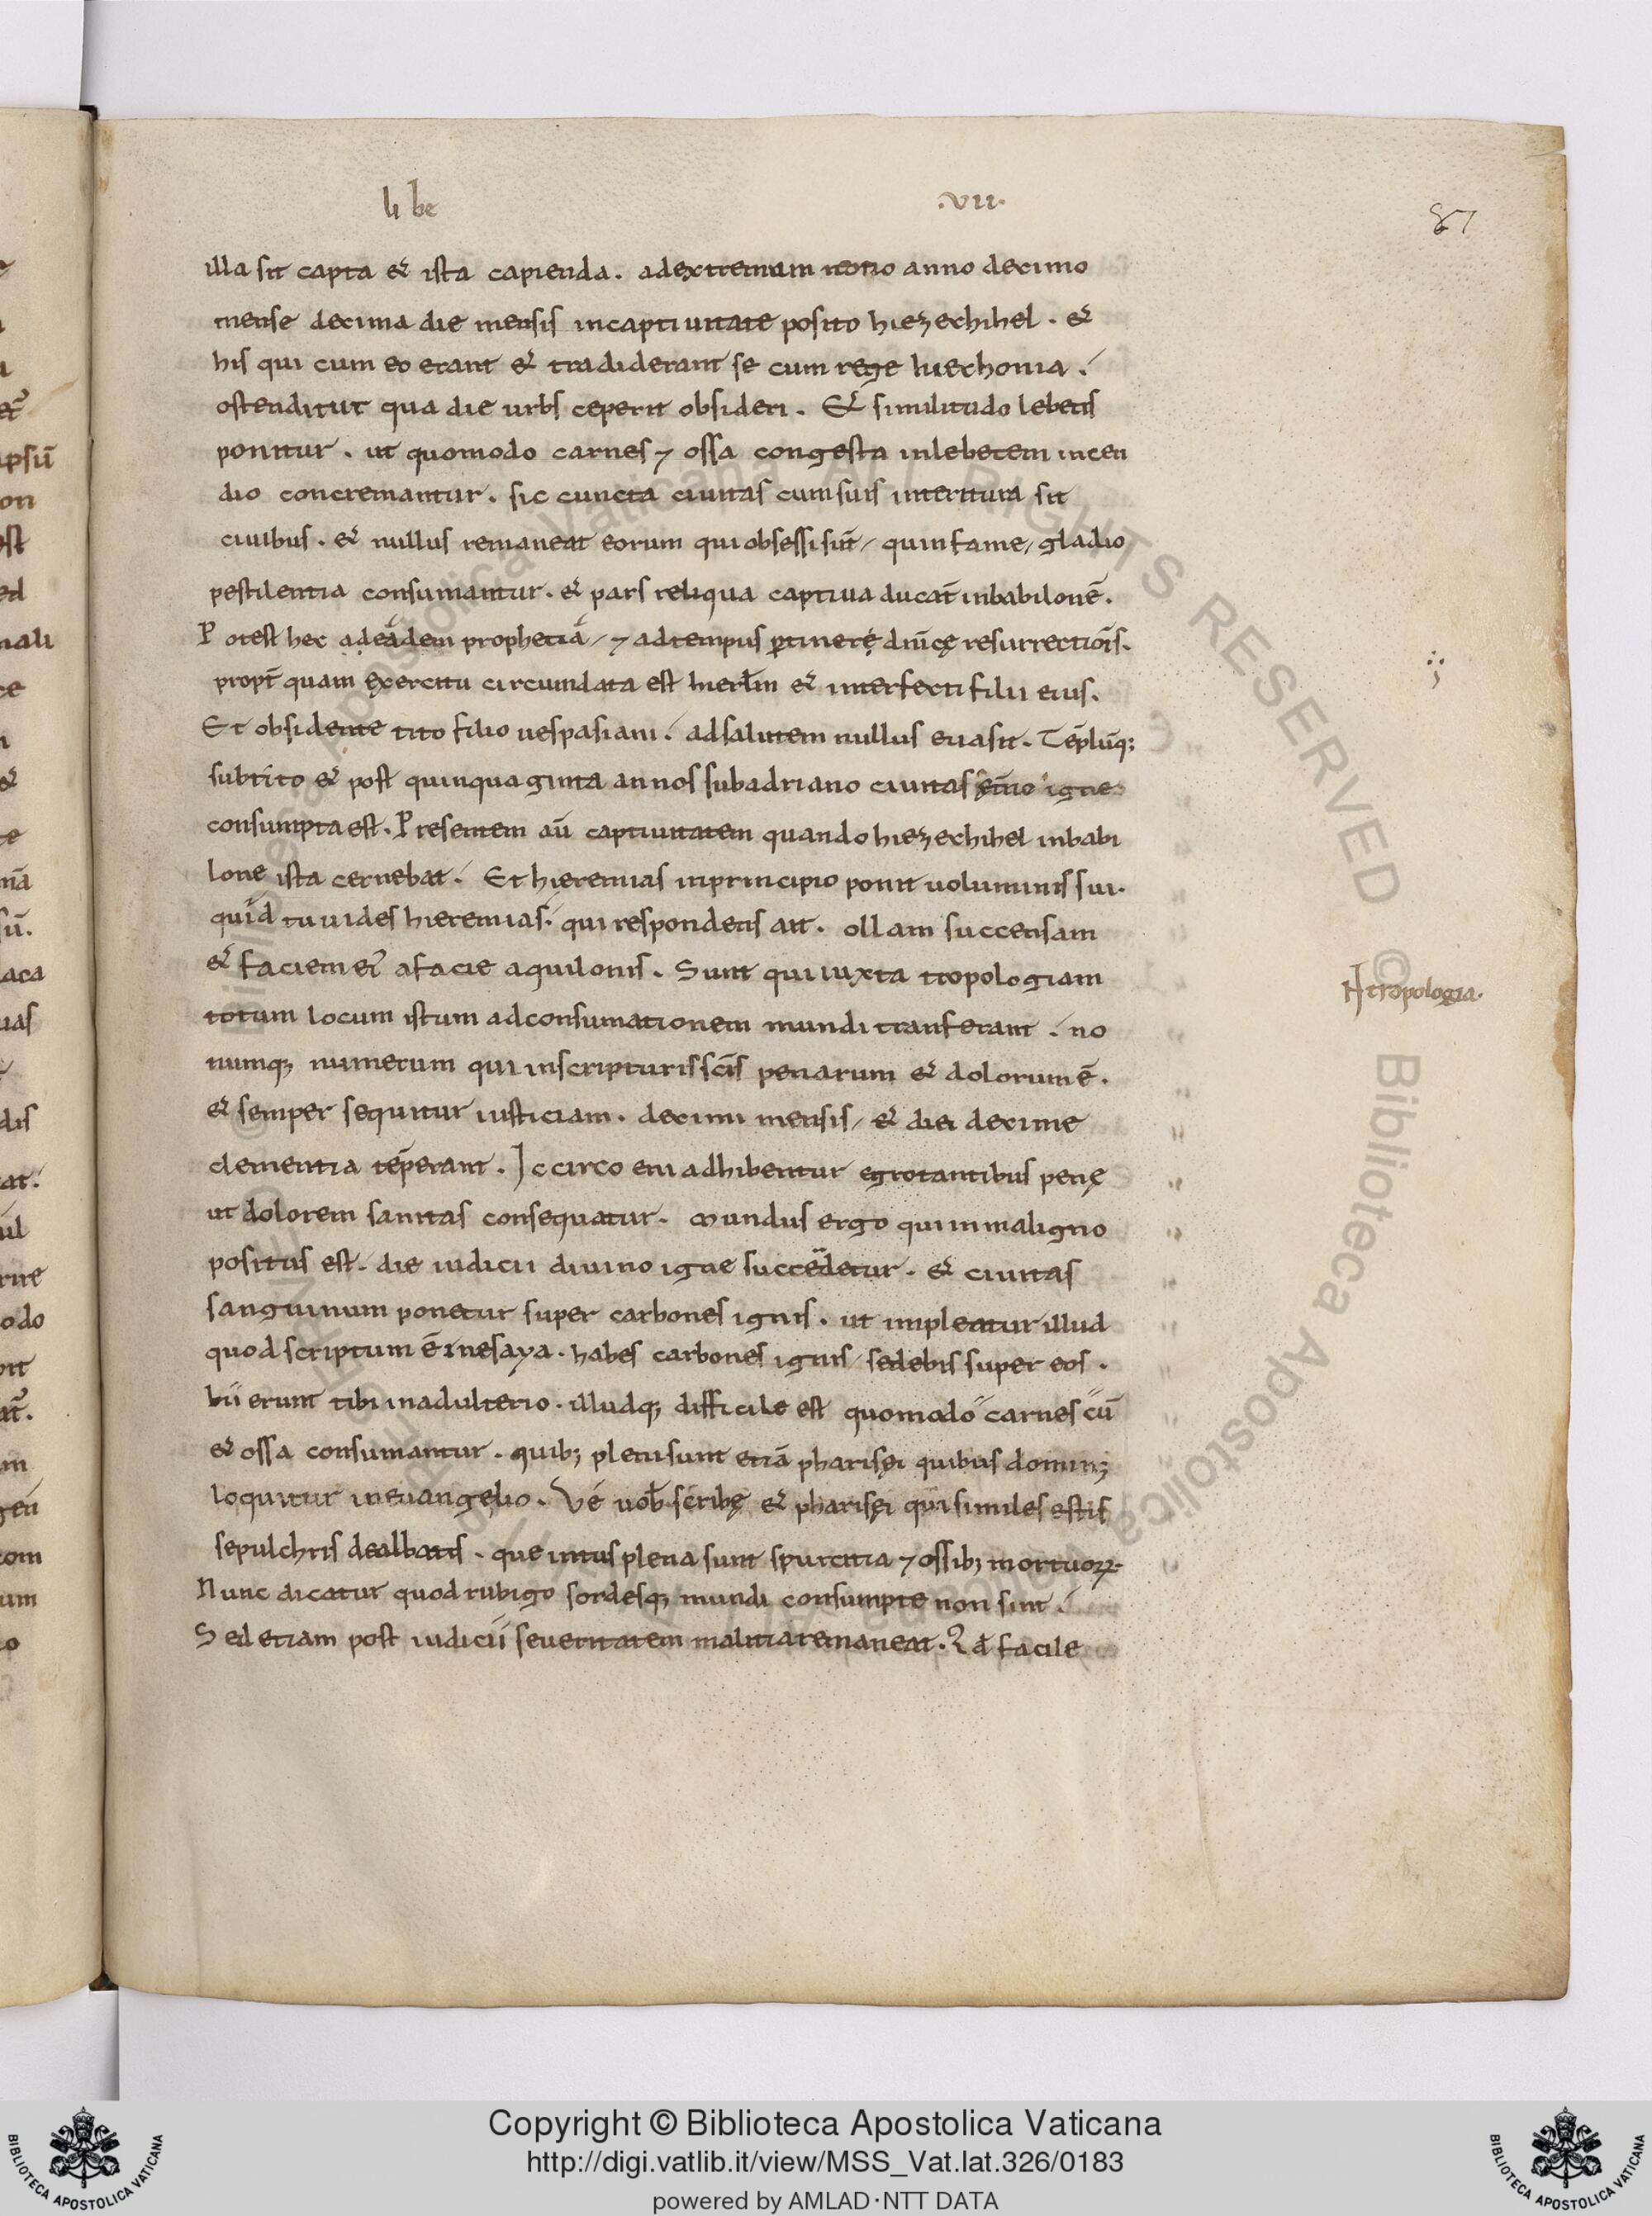 li be .VII. 87
illa sit capta & ista capienda. adextremum nono anno decimo
mense decima die mensis incaptiuitate posito hiezechihel. &
his qui cum eo erant & tradiderant se cum rege hiechonia.
ostenditur qua die urbs ceperit obsideri. Et similitudo lebetis
ponitur. ut quomodo carnes ⁊ ossa congesta inlebetem incen
dio concremantur. sic cuncta ciuitas cumsuis interitura sit
ciuibus. & nullus remaneat eorum qui obsessi sūt, quin fame, gladio
pestilentia consumantur. & pars reliqua captiua ducat̄ inbabilonē.
Potest hec adeādem prophetiā, ⁊ adtempus ꝑtinere dnīcę resurrectiōis.
propt̄ quam exercitu circumdata est hierłm & interfecti filii eius.
Et obsidente tito filio uespasiani. adsalutem nullus euasit. Tēplūq;
subtito & post quinquaginta annos subadriano ciuitas igne
consumpta est. Presentem aū captiuitatem quando hiezechihel inbabi
lone ista cernebat. Et hieremias inprincipio ponit uoluminis sui.
quid tu uides hieremias. qui respondens ait. ollam succensam
& faciem ei᷒ afacie aquilonis. Sunt qui iuxta tropologiam
totum locum istum adconsumationem mundi tranferant. no
numq; numerum qui inscripturis scīs penarum & dolorum ē.
& semper sequitur iusticiam. decimi mensis, & diei decime
clementia tēperant. Iccirco eni adhibentur egrotantibus penę
ut dolorem sanitas consequatur. Mundus ergo qui inmaligno
positus est. die iudicii diuino igne succēdetur. & ciuitas
sanguinum ponetur super carbones ignis. ut impleatur illud
quod scriptum ē inesaya. habes carbones ignis, sedebis super eos.
hii erunt tibi inadulterio. illudq; difficile est quomodo carnes cū
& ossa consumantur. quib; pleni sunt etiā pharisęi quibus domin;
loquitur ineuangelio. Vé uob. scribę & pharisęi qui similes estis
sepulchris dealbatis. que intus plena sunt spurcitia ⁊ ossib; mortuoꝝ
Nunc dicatur quod rubigo sordesq; mundi consumpte non sint.
Sed etiam post iudicii seueritatem malitia remaneat. Qđ facile
tropologia.
Copyright © Biblioteca Apostolica Vaticana
http://digi.vatlib.it/view/MSS_Vat.lat.326/0183
powered by AMLAD·NTT DATA
BIBLIOTECA APOSTOLICA VATICANA
BIBLIOTECA APOSTOLICA VATICANA